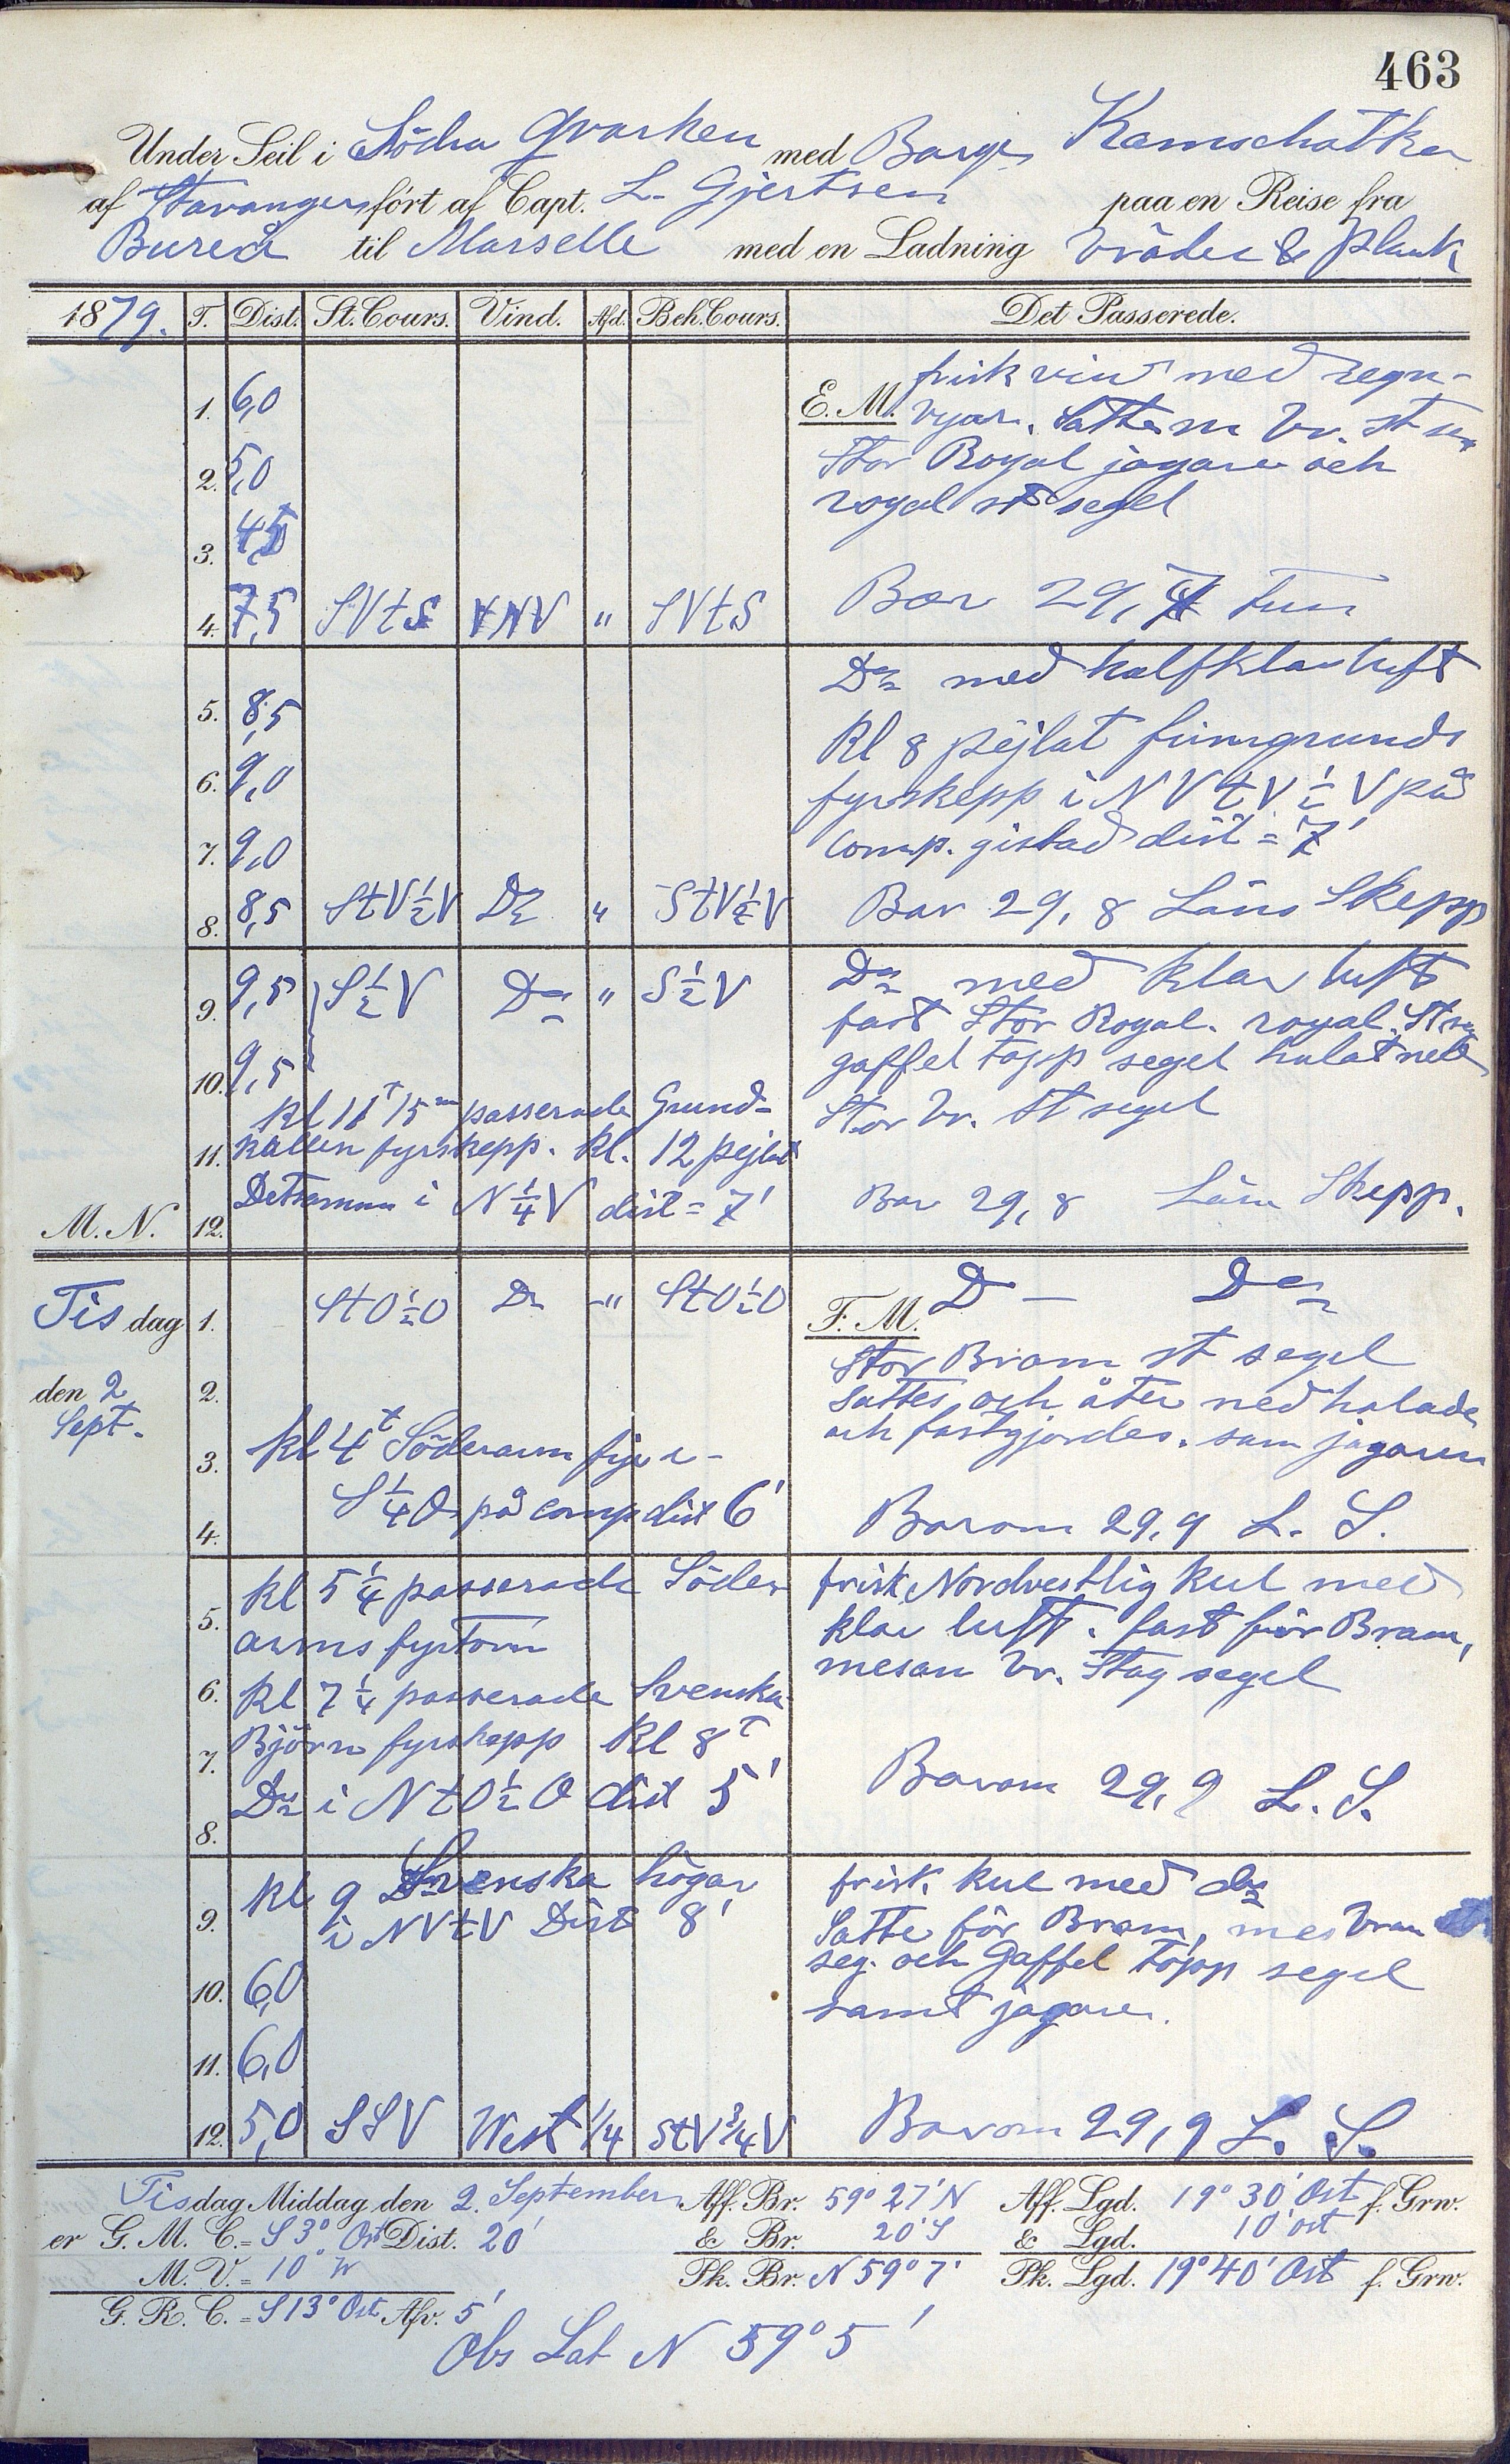 463
Under Seil i Södra Qvarken med Barg. Kamschatka
af Stavanger ført af Capt. L. Gjertsen paa en Reise fra
Bureå til Marselle med en Ladning bräder & plank
1879. T. Dist. St. Cours. Vind. Afd. Beh. Cours. Det Passerede.
E. M. frisk vind med regn-
1. 6,0 byar. Satte m br. st s
2. 5,0 Stor Royal jagare och
royal st segel
3. 4,5
4. 7,5 SVtS VNV " SVtS Bar 29,7
Do med halfklar luft
5. 8,5
Kl 8 pejlat finngrunds
6. 9,0 fyrskepp i NVtV ½ V på
7. 9,0 comp. gistad dist = 7'
8. 8,5 StV½V Do " StV½V Bar 29,8 Läns Skepp
9. 9,5 S½V Do " S½V Do med klar luft
fast Stor Royal. royal. St
10. 9,5 gaffel topp segel halat ned
Kl 11t 15m passerade Grund- Stor br. st segel
11. kallen fyrskepp. kl. 12 pejlat
M. N. 12. Detsamma i N¼V dist = 7' Bar 29,8 Läns Skepp.
Tisdag 1. StO½O Do " StO½O F. M. D — Do
Stor Bram st segel
den 2 Sept. 2. sattes och åter ned halade
3. kl 4t Söderarm fyr i och fastgjordes. sam jagaren
4. S¼O på comp dist 6' Barom 29,9 L. S.
kl 5¼ passerade Söder frisk Nordvestlig kul med
5. arms fyrtorn klar luft. fast för Bram,
6. Kl 7¼ passerade Svenska mesan br. Stag segel
7. Björn fyrskepp Kl 8t
8. Do i NtO½O dist 5' Barom 29,9 L. S.
kl 9 Svenska högar frisk kul med do
9. i NVtV Dist 8' Satte för Bram, mes bram
10. 6,0 seg. och Gaffel topp segel
samt jagare.
11. 6,0
12. 5,0 SSV West 1/4 StV¾V Barom 29,9 L. S.
Tisdag Middag den 2. September Aff. Br. 59° 27' N Aff. Lgd. 19° 30' Ost f. Grw.
er G. M. C. = S 3° Ost Dist. 20' & Br. 20' S & Lgd. 10' ost
M. V. = 10° W Pk. Br. N 59° 7' Pk. Lgd. 19° 40' Ost f. Grw.
G. R. C. = S 13° Ost Afv. 5'
Obs Lat N 59° 5'